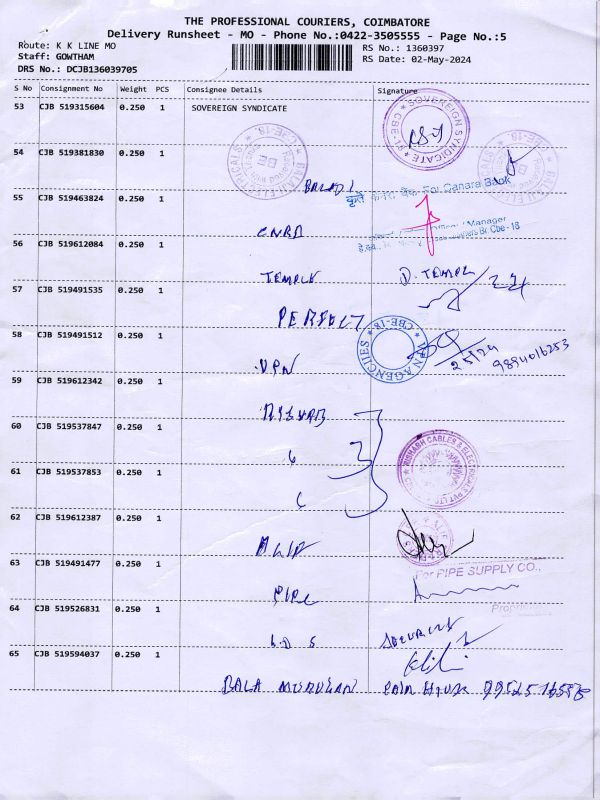 THE PROFESSIONAL COURIERS, COIMBATORE
Delivery Runsheet - MO - Phone No.:0422-3505555 - Page No.:5
Route: K K LINE MO
RS No.: 1360397
Staff: GOWTHAM
RS Date: 02-May-2024
DRS No.: DCJB136039705
S No Consignment No Weight PCS Consignee Details Signature
53 CJB 519315604 0.250 1 SOVEREIGN SYNDICATE
SOVEREIGN SYNDICATE
54 CJB 519381830 0.250 1
BALAJI
For Canara Bank
55 CJB 519463824 0.250 1
Manager
Br. Cbe - 18
CNRA
56 CJB 519612084 0.250 1
TEMPLE D. TEMPL
57 CJB 519491535 0.250 1
PERFECT
58 CJB 519491512 0.250 1
VPN AGENCIES CBE-18
VPN 2/5/24 9894016253
59 CJB 519612342 0.250 1
60 CJB 519537847 0.250 1
3
RISHABH CABLES & ELECTRICALS PVT LTD
61 CJB 519537853 0.250 1
62 CJB 519612387 0.250 1
63 CJB 519491477 0.250 1
For PIPE SUPPLY CO.,
PIPE
64 CJB 519526831 0.250 1
65 CJB 519594037 0.250 1
BALA MURUGAN